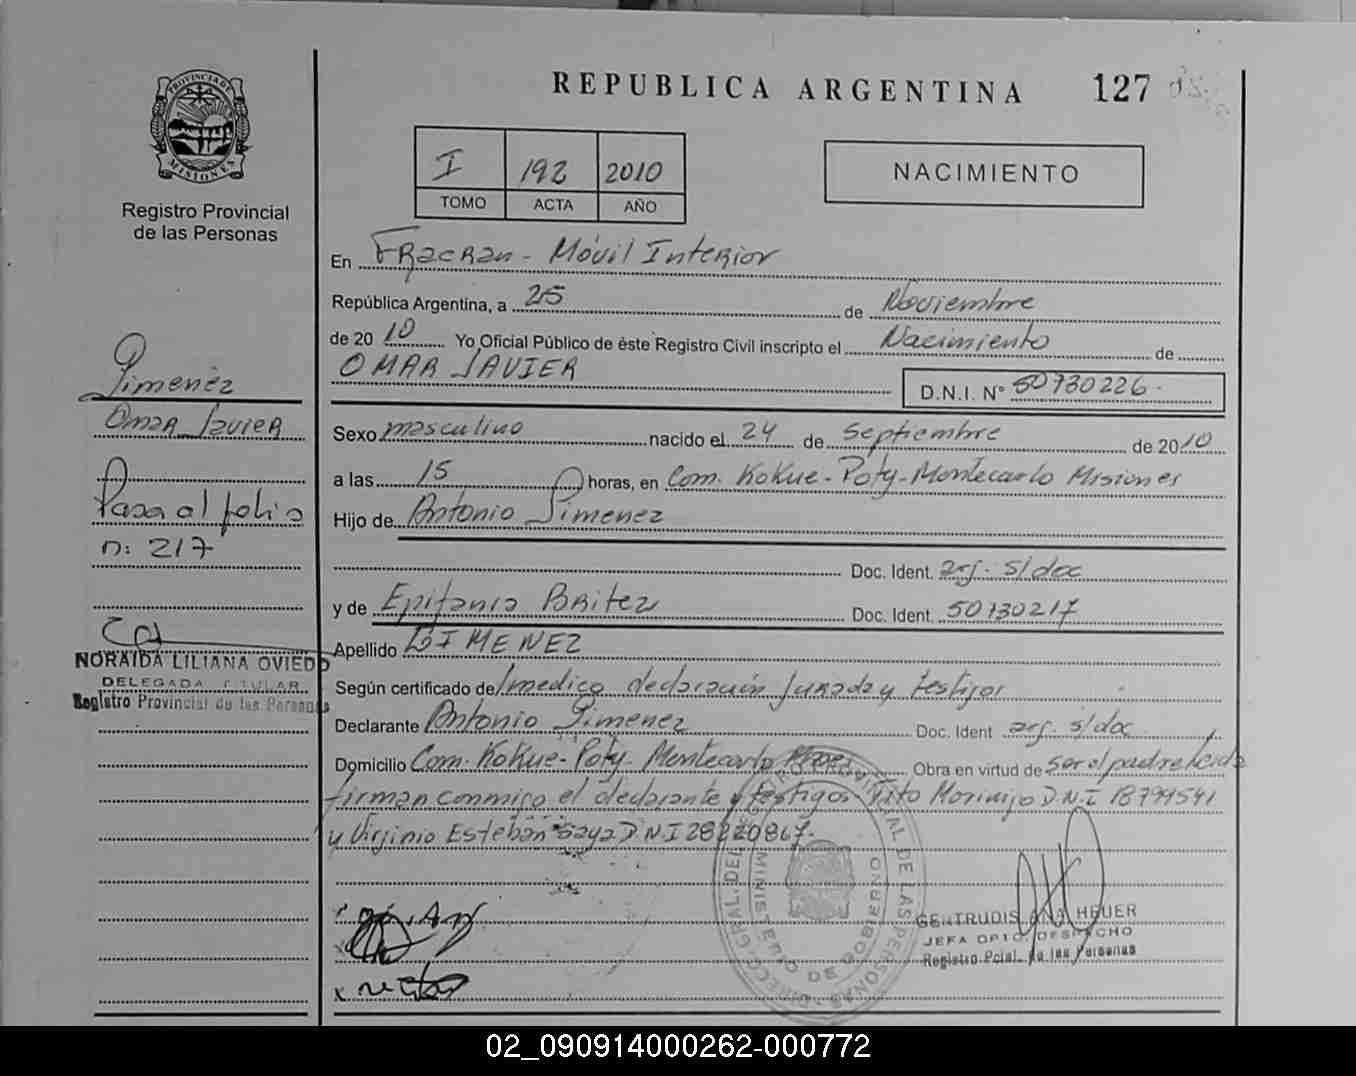 REPUBLICA ARGENTINA 127
PROVINCIA DE
MISIONES
Registro Provincial
de las Personas
I 192 2010
TOMO ACTA AÑO
NACIMIENTO
En Fracran - Móvil Interior
República Argentina, a 25 de Noviembre
de 20 10 Yo Oficial Público de éste Registro Civil inscripto el Nacimiento de
OMAR JAVIER
D.N.I. Nº 50730226.
Jimenez
Omar Javier
Pasa al folio
n: 217
NORAIDA LILIANA OVIEDO
DELEGADA TITULAR
Registro Provincial de las Personas
Sexo masculino nacido el 24 de Septiembre de 2010
a las 15 horas, en Com. Kokue-Poty-Montecarlo Misiones
Hijo de Antonio Jimenez
Doc. Ident. arg. s/doc
y de Epifania Britez Doc. Ident. 50730217
Apellido JIMENEZ
Según certificado de/ medico declaración jurada y testigos
Declarante Antonio Jimenez Doc. Ident arg. s/doc
Domicilio Com. Kokue-Poty-Montecarlo Mnes Obra en virtud de Ser el padre
firman conmigo el declarante y testigos Tito D.N.I 18799541
y Virginio Esteban D.N.I 28220867.
DIRECC. GRAL. DEL REGISTRO PROVINCIAL DE LAS PERSONAS
MINISTERIO DE GOBIERNO
GERTRUDIS ANA HEUER
JEFA DPTO. DESPACHO
Registro Pcial. de las Personas
02_090914000262-000772